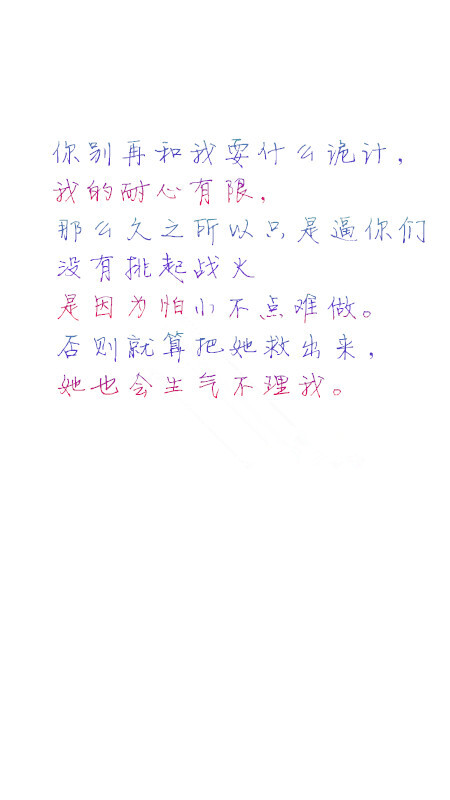 你别再和我耍什么诡计，
我的耐心有限，
那么久之所以只是逼你们
没有挑起战火
是因为怕小不点难做。
否则就算把她救出来，
她也会生气不理我。